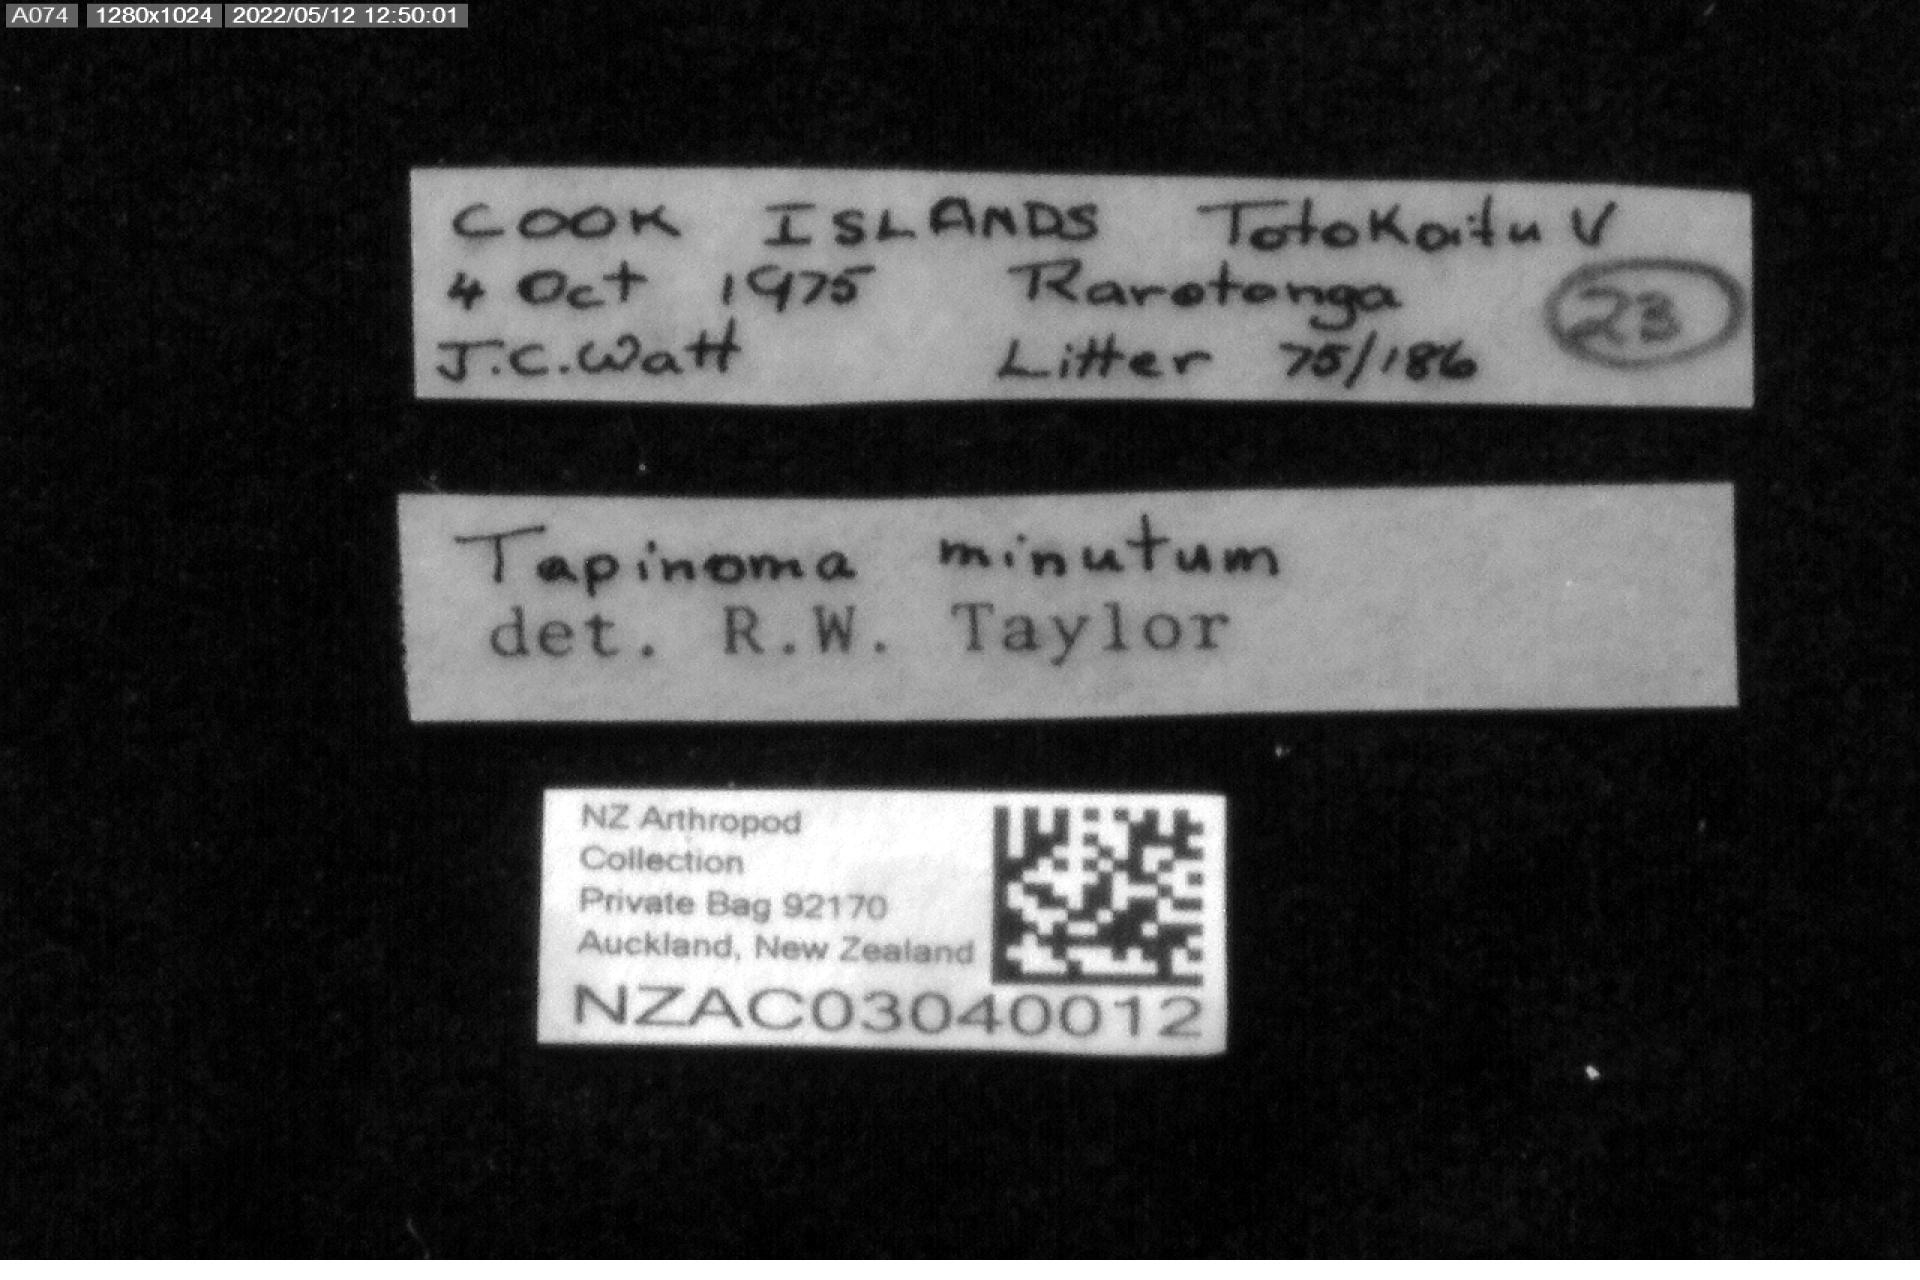 A074 1280x1024 2022/05/12 12:50:01
COOK ISLANDS Totokoitu V
4 Oct 1975 Rarotonga
23
J.C. Watt Litter 75/186
Tapinoma minutum
det. R.W. Taylor
NZ Arthropod
Collection
Private Bag 92170
Auckland, New Zealand
NZAC03040012